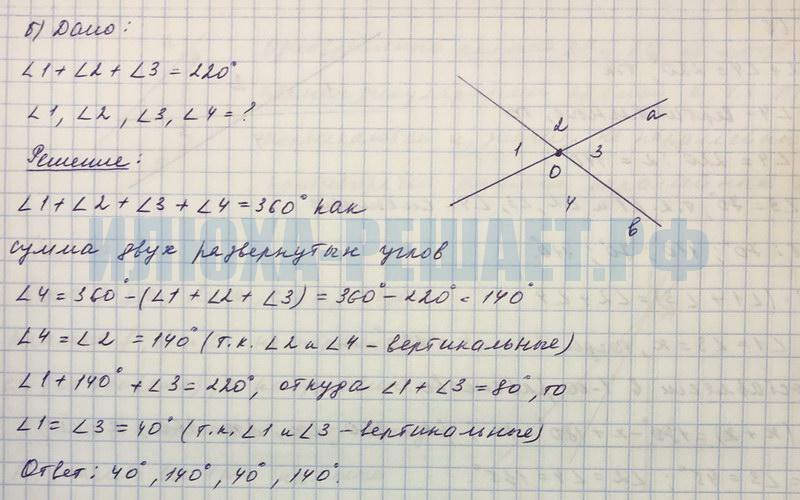 б) Дано:
∠1 + ∠2 + ∠3 = 220°
∠1, ∠2, ∠3, ∠4 = ?
Решение:
∠1 + ∠2 + ∠3 + ∠4 = 360° как
сумма двух развернутых углов
∠4 = 360° - (∠1 + ∠2 + ∠3) = 360° - 220° = 140°
∠4 = ∠2 = 140° (т.к. ∠2 и ∠4 - вертикальные)
∠1 + 140° + ∠3 = 220°, откуда ∠1 + ∠3 = 80°, то
∠1 = ∠3 = 40° (т.к. ∠1 и ∠3 - вертикальные)
Ответ: 40°, 140°, 40°, 140°.
a
2
1
3
O
4
b
ИЛЮХА-РЕШАЕТ.РФ